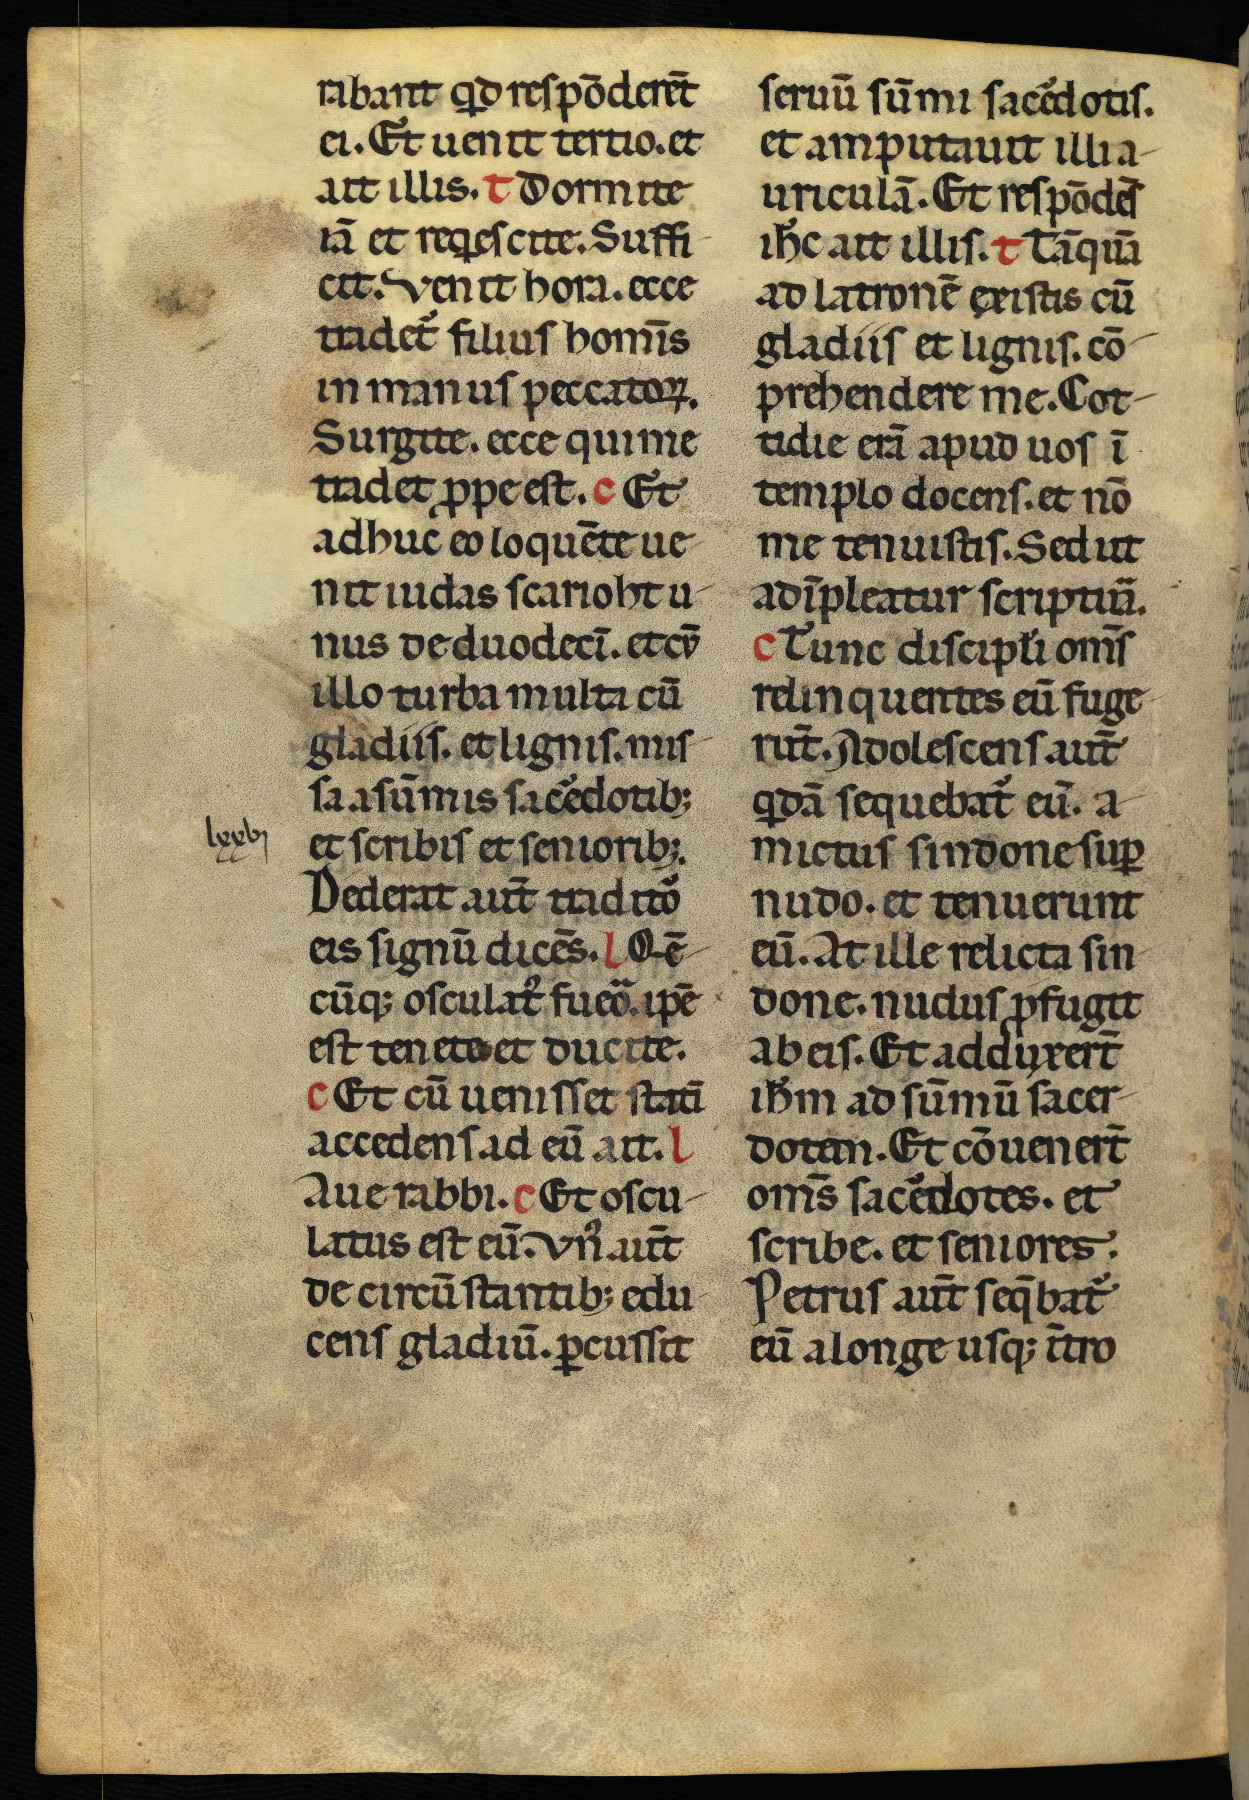 rabant qd respōderēt
ei. Et uenit tertio. et
ait illis. t Dormite
iā et reqescite. Suffi
cit. Venit hora. ecce
tradet᷑ filius homīs
in manus peccatoꝝ.
Surgite. ecce qui me
tradet ꝓpe est. c Et
adhuc eo loquēte ue
nit iudas scarioht u-
nus de duodecī. et cū
illo turba multa cū
gladiis. et lignis. mis-
sa a sūmis sac᷑edotib;
et scribis etseniorib;.
Dederat aut̄ tradito᷑
eis signū dicēs. l Qē-
cūq; osculat᷑ fueͣo. ip̄e
est tenete et ducite.
c Et cū uenisset statī
accedens ad eū ait. l
Aue rabbi. c Et oscu-
latus est eū. Vn᷑ aut̄
de circūstantib; edu
cens gladiū. ꝑcussit
lxxbi
seruū sūmi sac᷑edotis.
et amputauit illi a-
uriculā. Et respōdēs
ih̄c ait illis. t Tāquā
ad latronē existis cū
gladiis et lignis. cō-
prehendere me. Cot-
tidie erā apud uos ī
templo docens. et nō
me tenuistis. Sed ut
adīpleatur scriptuͣa.
c Tunc discipl̄i om̄s
relinquentes eū fuge-
rūt. Adolescens aut̄
qdā sequebat᷑ eū. a-
mictus sindone suꝑ
nudo. et tenuerunt
eū. At ille relicta sin-
done. nudus ꝓfugit
ab eis. Et adduxert̄
ih̄m ad sūmū sacer-
dotem. Et cōuenert̄
om̄s sac᷑edotes. et
scribe. et seniores.
Petrus aut̄ seq̄bat᷑
eū a longe usq; īt̄ro